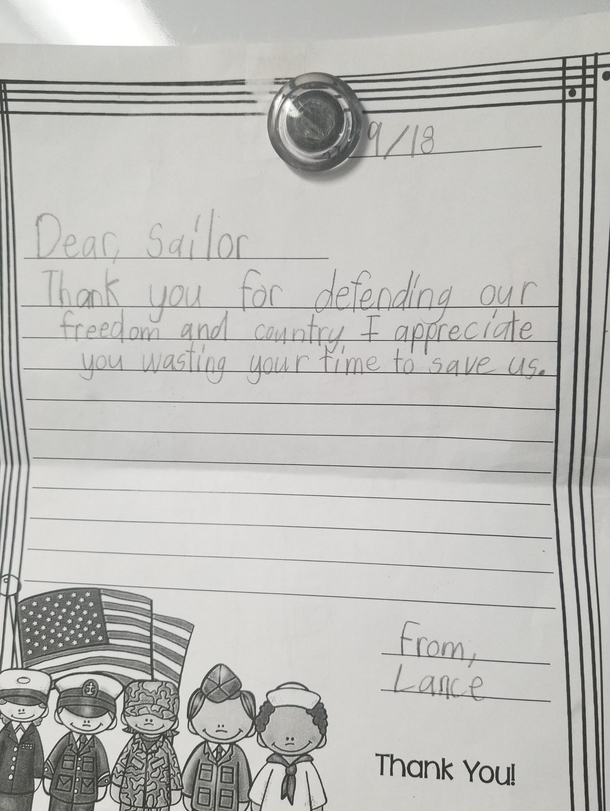 9/18
Dear, Sailor
Thank you for defending our
freedom and country. I appreciate
you wasting your time to save us.
From,
Lance
Thank You!